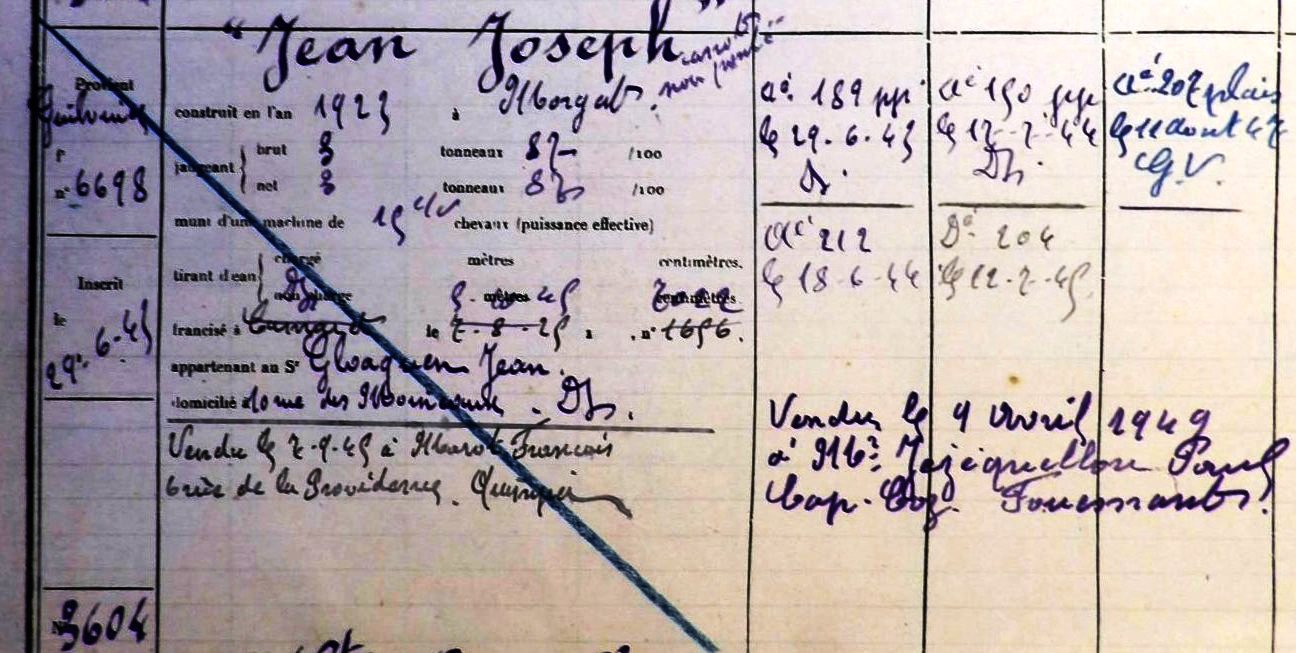 "Jean Joseph"
canot
non ponté
Provient
Guilvinec
fº
nº 6698
Inscrit
le
29. 6-45
3604
construit en l'an 1925 à Morgat.
jaugeant
brut 3 tonneaux 87 /100
net 3 tonneaux 87 /100
muni d'une machine de 15 c/v chevaux (puissance effective)
tirant d'eau
chargé mètres centimètres.
non chargé mètres centimètres
francisé à le 7-8-25 nº 1656.
appartenant au Sr Gloaguen Jean.
domicilié à 10 rue des
Vendu le 7-9-45 à François
6 rue de la Providence. Quimper
189
le 29-6-45
le 12-7-44
207 plais
le 11 août 47
G.V.
212
le 18-6-44
204
le 12-7-45
Vendu le 9 Avril 1949
à Mr Jézéquellou Paul
Cap-Coz. Fouesnant.